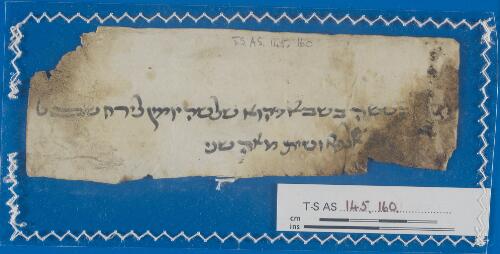 T-S AS 145.160
בששה בשבא דהוא שלשה יומין לירח שבט
אלפא ושית מאה שני
T-S AS 145.160
cm
ins